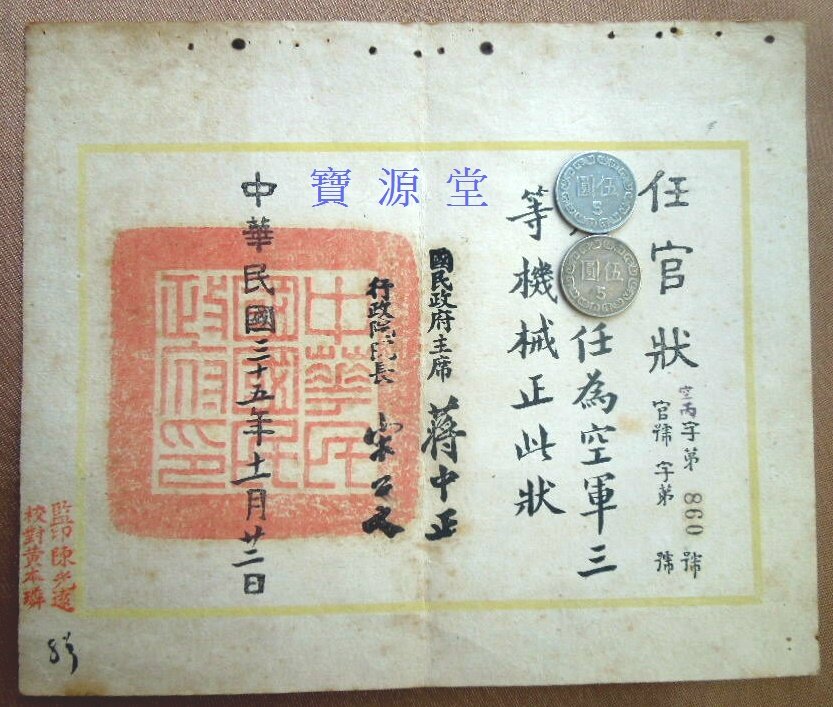 寶源堂
任官狀
空丙字第860號
官號字第 號
伍圓
5
伍圓
5
任為空軍三
等機械正此狀
國民政府主席 蔣中正
行政院院長 宋子文
中華民國三十五年十一月廿二日
中華民
國國民
政府印
監印陳光遠
校對黃本璘